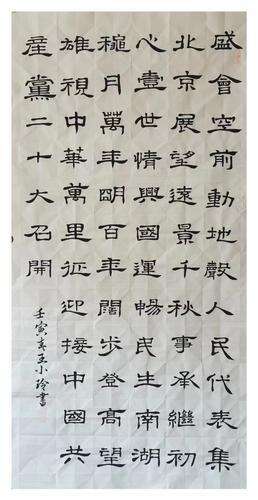 盛會空前動地聲人民代表集
北京展望遠景千秋事承繼初
心壹世情興國運暢民生南湖
穐月萬年明百年闊步登高望
雄視中華萬里征迎接中國共
產黨二十大召開
壬寅王小玲書